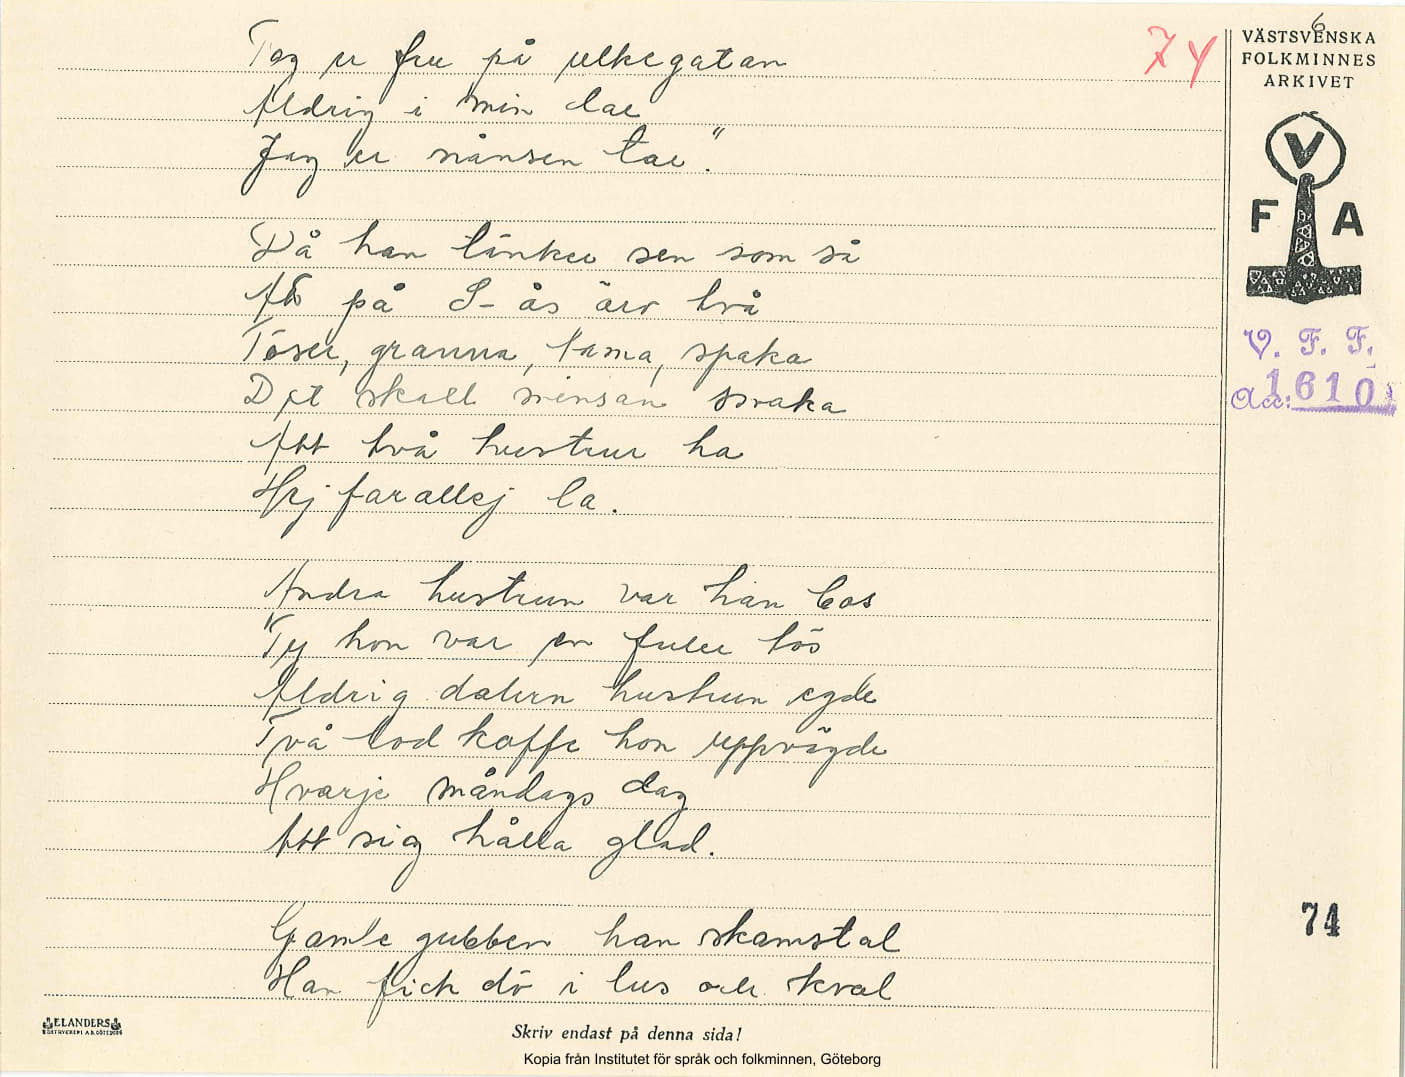 6
VÄSTSVENSKA
FOLKMINNES
ARKIVET
V
F A
V. F. F.
Acc: 1610
74
Tag er fru på ulkegatan
Aldrig i min dae
Jag er nånsen tae."
Då han tänker sen som så
At på S-ås äro två
Töser, granna, tama, spaka
Det skall minsan smaka
Att två hustrur ha
Hej farallej la.
Andra hustrun var han los
Ty hon var en fuler tös
Aldrig dalern hustrun egde
Två lod kaffe hon uppvägde
Hvarje måndags dag
Att sig hålla glad.
Gamle gubben han skamstal
Han fick dö i lus och kval
74
ELANDERS
Skriv endast på denna sida!
Kopia från Institutet för språk och folkminnen, Göteborg